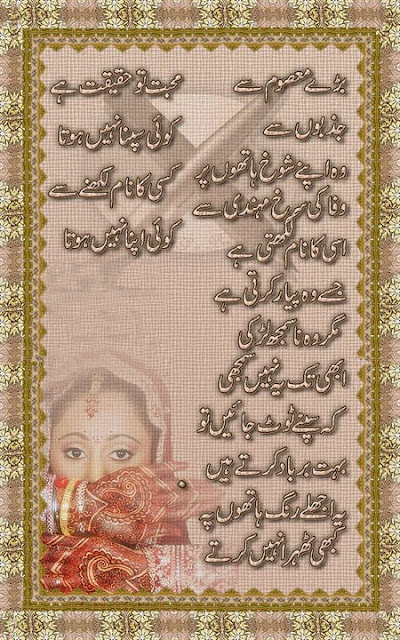 بڑے معصوم سے
جذبوں سے
وہ اپنے شوخ ہاتھوں پر
وفا کی سرخ مہندی سے
اسی کا نام لکھتی ہے
جسے وہ پیار کرتی ہے
مگر وہ نا سمجھ لڑکی
ابھی تک یہ نہیں سمجھی
کہ سپنے ٹوٹ جائیں تو
بہت برباد کرتے ہیں
یہ اجھلے رنگ ہاتھوں پہ
کبھی ٹھہرا نہیں کرتے
محبت تو حقیقت ہے
کوئی سپنا نہیں ہوتا
کسی کا نام لکھنے سے
کوئی اپنا نہیں ہوتا